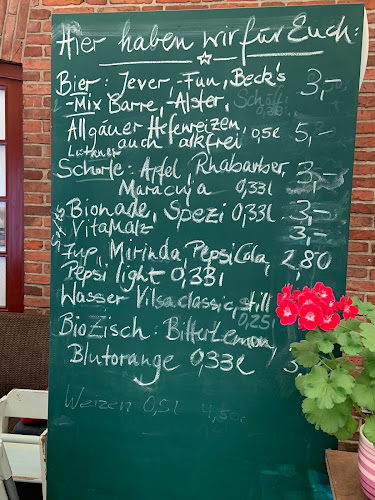 Hier haben wir für Euch:
Bier: Jever-Fun, Beck's 3,-
-Mix Barre, Alster,
Allgäuer Hefeweizen, 0,5l 5,-
auch alkfrei
Schorle: Apfel, Rhabarber, 3,-
Maracuja 0,33l
Bionade, Spezi 0,33l 3,-
Vitamalz 3,-
7up, Mirinda, PepsiCola, 2,80
Pepsi light 0,33l
Wasser Vilsa classic, still
0,25l
BioZisch: BitterLemon,
Blutorange 0,33l 3
Weizen 0,5l 4,50